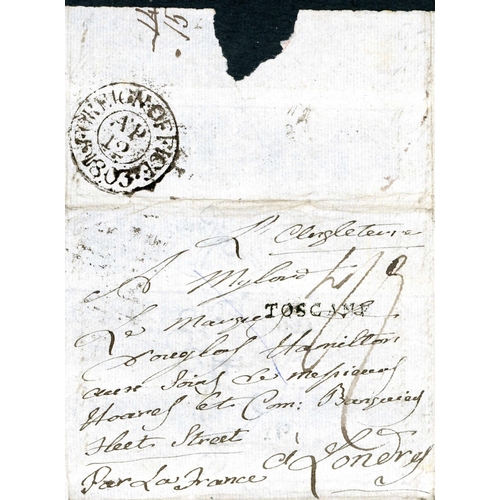 FOREIGN OFFICE 1803
AP
12
L'Angleterre
A Mylord
TOSCANE
Le Marquis
Douglas Hamilton
aux Soins de Messieurs
Hoares et Com: Banquiers
Fleet Street
à Londres
Par La France